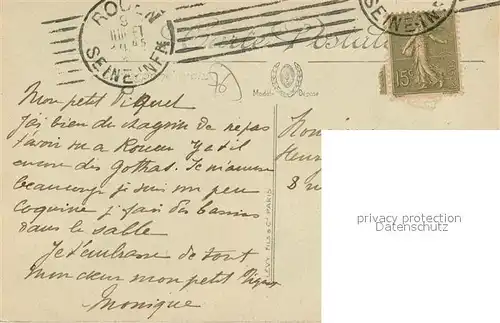 ROUEN
SEINE-INFRE
SEINE-INFRE
Carte Postale
76
Modèle Déposé
15c
Mon petit Viquet
j'ai bien du chagrin de ne pas
t'avoir vu a Rouen Y a t'il
encore des Gothas. Je m'amuse
beaucoup je suis un peu
coquine j'ai fais des bassins
dans le sable
Je t'embrasse de tout
mon cœur mon petit
Monique
LEVY FILS & Cie PARIS
Henri
8
privacy protection
Datenschutz